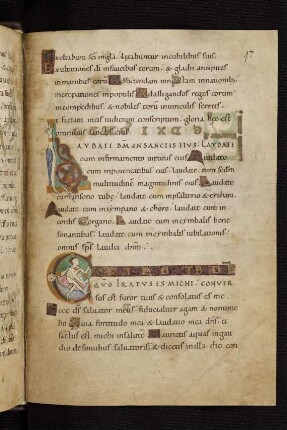 47
Exultabunt sci in gla. laetabuntur in cubilibus suis.
Exultationes di in faucibus eorum. & gladii ancipites
in manibus eorum Ad faciendam uindictam in nationib;
increpationes in populis Ad alligandos reges eorum
in compedibus. & nobiles eorum in manicis ferreis.
faciant in eis iudicium conscriptum. gloria haec est
omnibus sanctis eius.
LAUDATE DNM IN SANCTIS EIUS. LAUDATE
eum in firmamento uirtutis eius Laudate
eum in potentatibus eius. laudate eum sedm
multitudine magnitudinis eius Laudate
eum in sono tubae. laudate eum in psalterio & cithara
Laudate eum in tympano & choro. laudate eum in
cordis & organo. Laudate eum in cymbalis bene
sonantibus. laudate eum in cymbalis iubilationis.
omnis sps laudet dnm.
QUO IRATUS ES MICHI. CONUER
sus est furor tuus & consolatus es me.
Ecce ds saluator meus. fiducialiter agam & non time
bo Quia fortitudo mea & laudatio mea dns.
factus est michi in salute Haurietis aquas in gau
dio de fontibus saluatoris. & dicetis in illa die. con